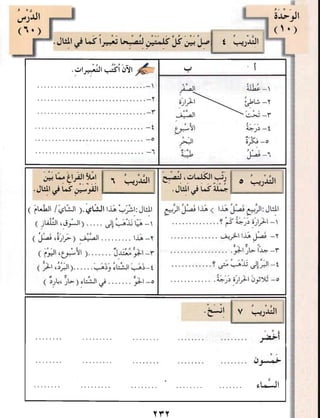 الوَحْدَةُ
(١٠)
الدَّرْسُ
(٦٠)
التَّدْرِيبُ ٤ صِلْ بَيْنَ كُلِّ كَلِمَتَيْنِ لِتُصْبِحَا تَعْبِيراً كَمَا فِي المِثَال.
أ ب
١- عُطْلَةُ الصِّفْر
٢- شَاطِئُ الحَرَارَة
٣- تَحْتَ الصَّيْف
٤- دَرَجَةُ الأُسْبُوع
٥- فِكْرَةٌ البَحْر
٦- فَصْلُ طَيِّبَةٌ
الآنَ اُكْتُبِ التَّعْبِيرَاتِ.
١-
٢-
٣-
٤-
٥-
٦-
التَّدْرِيبُ ٥ رَتِّبِ الكَلِمَاتِ، لِتُصْبِحَ
جُمْلَةً كَمَا فِي المِثَال.
المِثَال: الرَّبِيع فَصْلُ هَذَا ( هَذَا فَصْلُ الرَّبِيع )
١- الحَرَارَة دَرَجَةُ كَمْ ؟
٢- فَصْلُ هَذَا الخَرِيف
٣- جِدّاً حَارٌّ الجَوُّ.
٤- البَرِّ إِلَى تَذْهَبُ مَتَى ؟
٥- ثَلاثُونَ الحَرَارَة دَرَجَةُ.
التَّدْرِيبُ ٦ اِمْلأ الفَرَاغَ مِمَّا بَيْنَ
القَوْسَيْنِ كَمَا فِي المِثَال.
المِثَال: اِشْرَبْ هَذَا الشَّاي. ( الشَّاي / الطَّعَام )
١- هَيَّا نَذْهَبْ إِلَى ( السُّوق، التِّلْفَاز )
٢- هَذَا الصَّيْف ( حَرَارَة، فَصْلُ )
٣- الجَوُّ مُعْتَدِلٌ ( الأُسْبُوع، اليَوْم )
٤- ذَهَبَ الشِّتَاءُ وَذَهَبَ ( البَرْدُ، الحَرُّ )
٥- الجَوُّ فِي الشِّتَاء ( حَارٌّ، بَارِدٌ )
التَّدْرِيبُ ٧ اِنْسَخْ.
أَخْضَر
خَمْسُون
السَّمَاء
٢٣٢